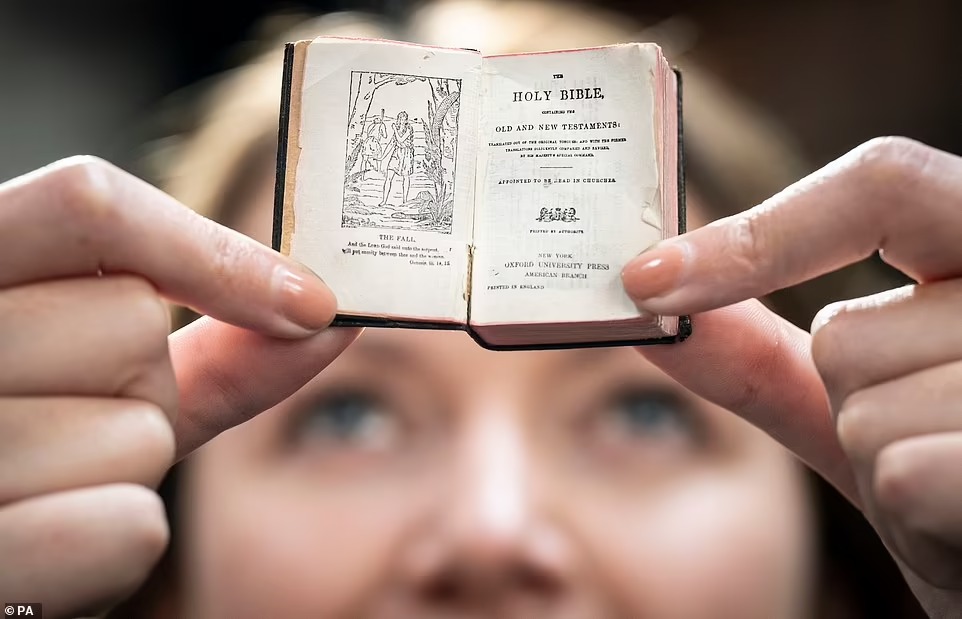 THE FALL.
And the LORD God said unto the serpent, I
will put enmity between thee and the woman.
Genesis iii. 14, 15.
THE
HOLY BIBLE,
CONTAINING THE
OLD AND NEW TESTAMENTS:
TRANSLATED OUT OF THE ORIGINAL TONGUES: AND WITH THE FORMER
TRANSLATIONS DILIGENTLY COMPARED AND REVISED,
BY HIS MAJESTY'S SPECIAL COMMAND.
APPOINTED TO BE READ IN CHURCHES.
PRINTED BY AUTHORITY.
NEW YORK
OXFORD UNIVERSITY PRESS
AMERICAN BRANCH
PRINTED IN ENGLAND
© PA